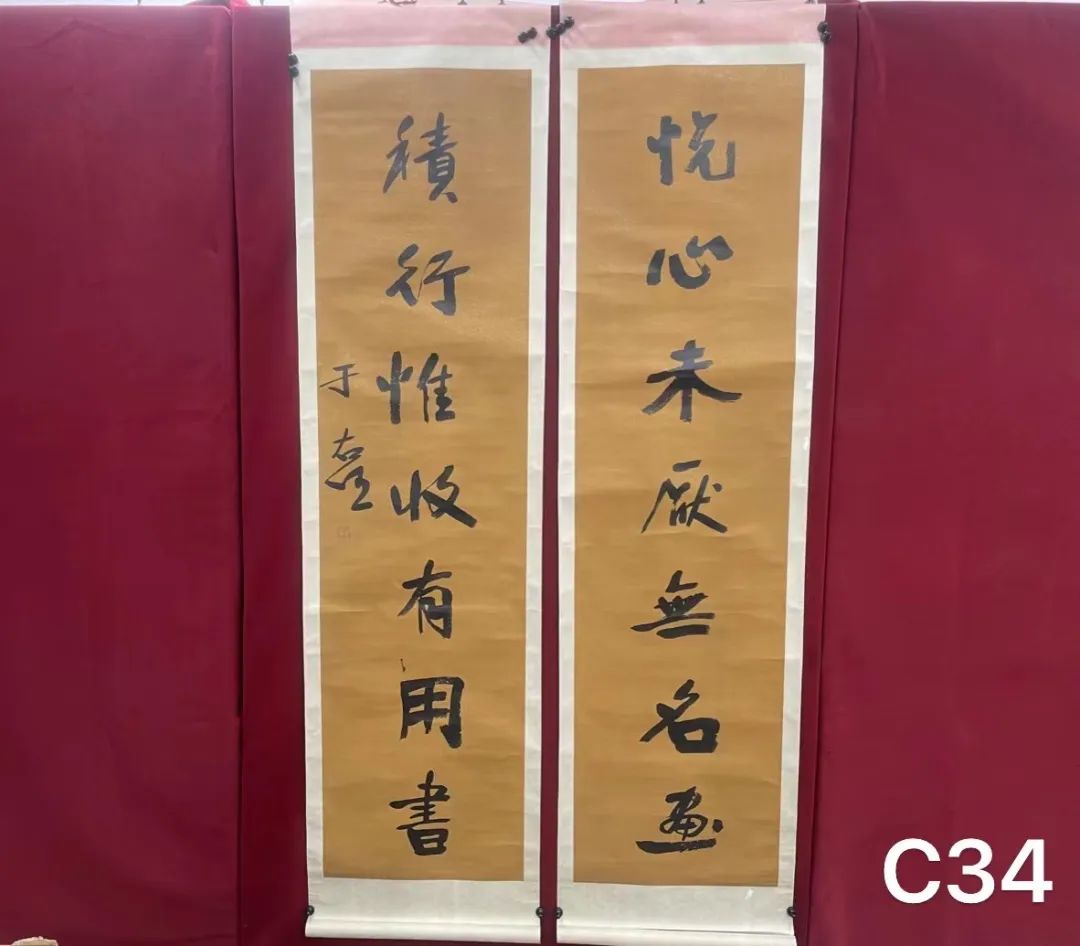 悦心未厭無名畫
積行惟收有用書
于右任
C34